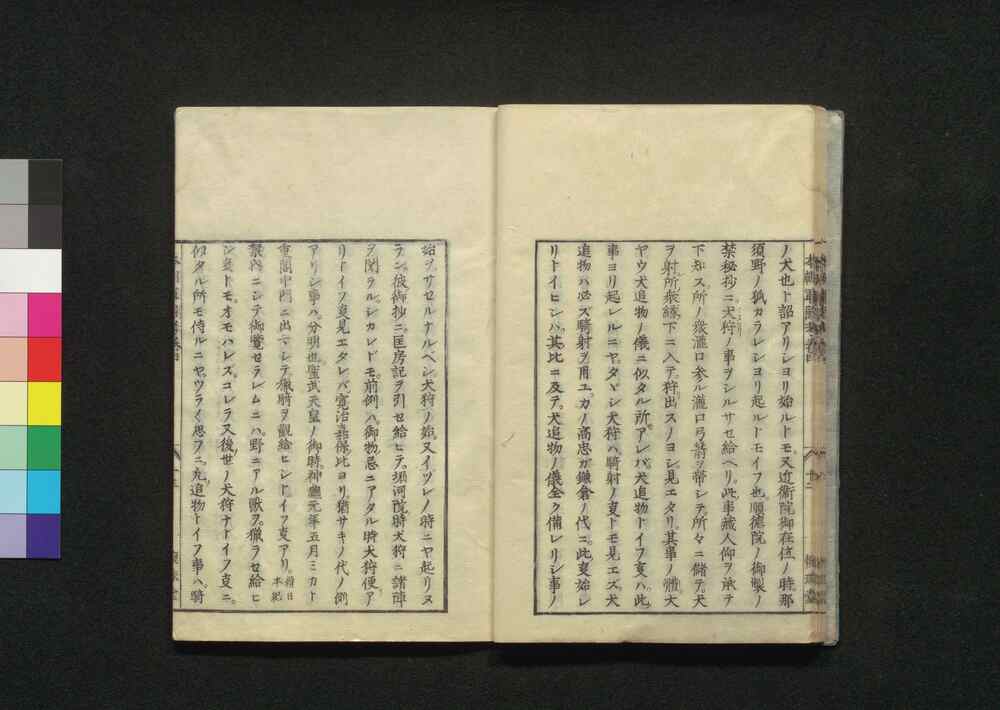 ノ犬也ト詔アリシヨリ始ルトモ又近衛院御在位ノ時那
須野ノ狐カラレシヨリ起ルトモイフ也順徳院ノ御製ノ
禁秘抄ニ犬狩ノ事ヲシルサセ給ヘリ此事蔵人仰ヲ承テ
下知ス所ノ衆瀧口参ル瀧口弓箭ヲ帯シテ所々ニ儲テ犬
ヲ射所衆縁下ニ入テ狩出スノヨシ見エタリ其事ノ體大
ヤウ犬追物ノ儀ニ似タル所アレバ犬追物トイフ叓ハ此
事ヨリ起レルニヤタヾシ犬狩ハ騎射ノ叓トモ見エズ犬
追物ハ必ズ騎射ヲ用ユカノ高忠ガ鎌倉ノ代ニ此叓始レ
リトイヒシハ其比ニ及テ犬追物ノ儀全ク備レリシ事ノ
始ヲサセルナルベシ犬狩ノ始又イヅレノ時ニヤ起リヌ
ラン彼御抄ニ匡房記ヲ引セ給ヒテ堀河院時犬狩ニ諸陣
ヲ閉ラルシカレドモ前例ハ御物忌ニアタル時犬狩便ア
リトイフ叓見エタレバ寛治嘉保比ヨリ猶サキノ代ノ例
アリシ事ハ分明也聖武天皇ノ御時神龜元年五月ミカド
重閣中門ニ出マシテ猟騎ヲ觀給ヒシトイフ叓アリ
續日
本紀
禁内ニシテ御覽セラレムニハ野ニアル獸ヲ獵ラセ給ヒ
シ叓トモオモハレズコレラ又後世ノ犬狩ナドイフ叓ニ
似タル所モ侍ルニヤツラ〱思フニ凡追物トイフ事ハ騎